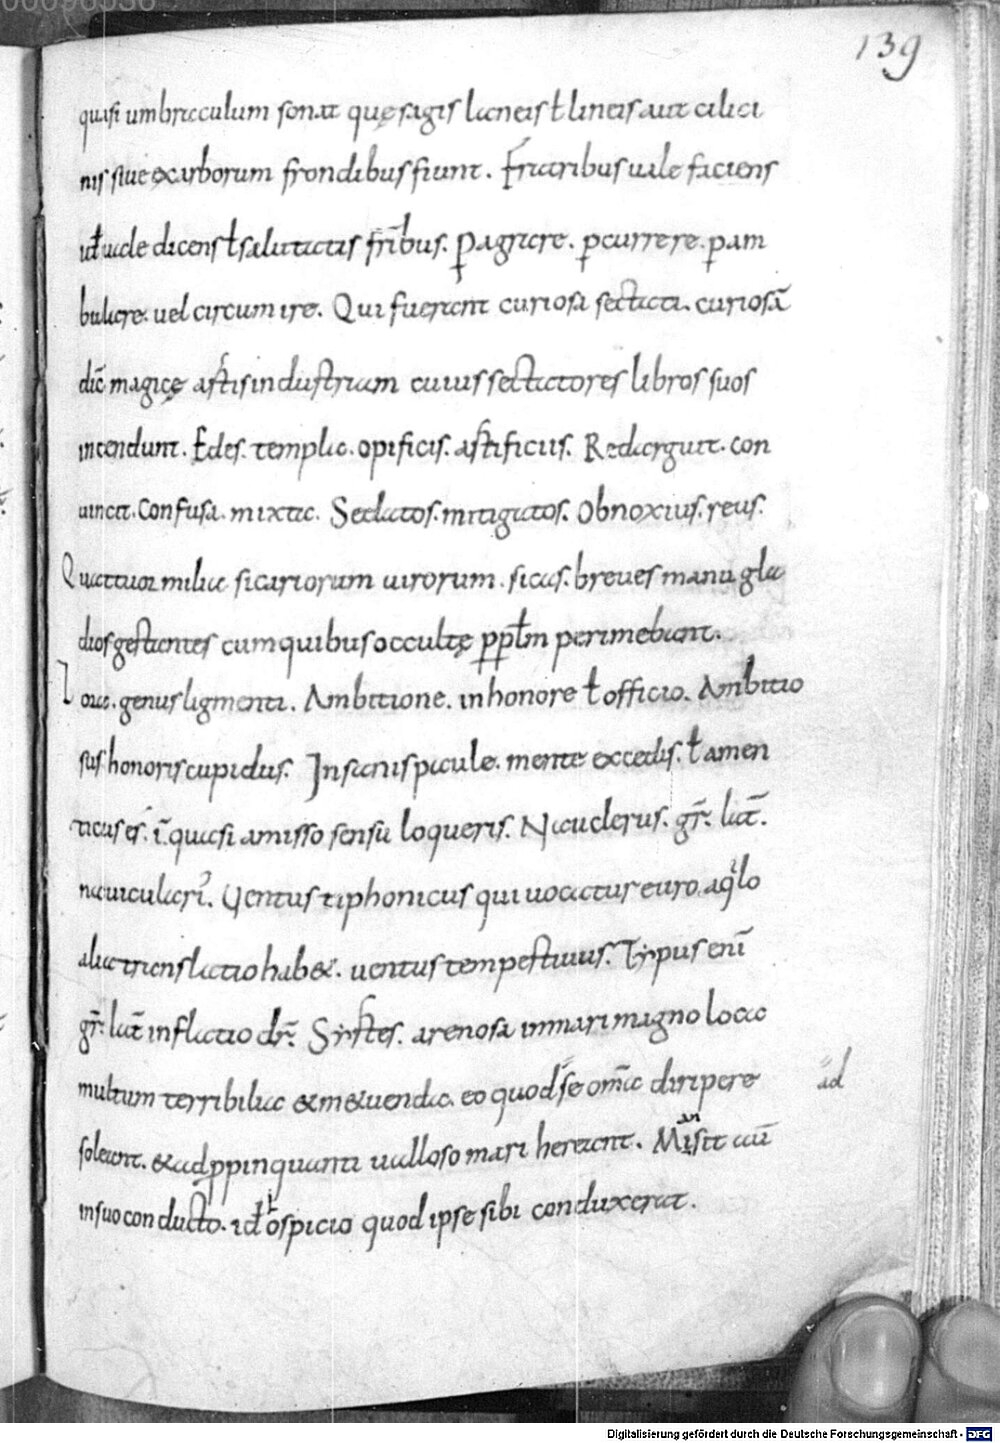 139
quasi umbraculum sonat quę sagis laneis ł lineis aut cilici
nis siue ex arborum frondibus fiunt. Fratribus uale faciens
uł uale dicens ł salutatis frībus. Pagrare. pcurrere. pam
bulare. uel circumire. Qui fuerant curiosa sectati. curiosā
dīc magicę artis industriam cuius sectatores libros suos
incendunt. Edes. templa. opificis. artificiis. Redarguit. con
uincit. Confusa. mixta. Sedatos. mitigatos. Obnoxius. reus.
Quattuor milia sicariorum uirorum. sicas. breues manu gla
dios gestantes cum quibus occultę ppłm perimebant.
Lora. genus ligmenti. Ambitione. in honore ł officio. Ambitio
sus honoris cupidus. Insanis paule. mente excedis. ł amen
ticus es. ī. quasi amisso sensu loqueris. Nauclerus. gr̄. lat̄.
nauiculari᾽. Uentus tiphonicus qui uocatur euro aqͥlo
alia translatio hab&. uentus tempestiuus. Typus enī
gr̄. lat̄ inflatio dr̄. Syrtes. arenosa in mari magno loca
multum terribilia &metuenda. eo quod s̄e om̄ia diripere
ad
soleant. &adppinquanti uadloso mari hereant. Misit aū
in suo conducto. id ospicio quod ipse sibi conduxerat.
Digitalisierung gefördert durch die Deutsche Forschungsgemeinschaft - DFG